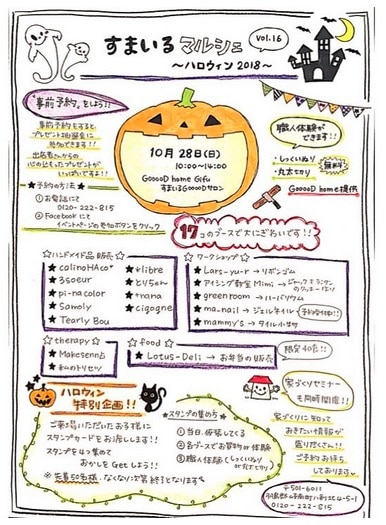 すまいる マルシェ
vol.16
～ハロウィン 2018～
事前予約をしよう!!
事前予約をすると
プレゼント抽選会に
参加できます!!
出店者さんからの
心のこもったプレゼントが
いっぱいですよ!!
★予約の方法★
① お電話にて
0120-222-815
② Facebookにて
イベントページの参加ボタンをクリック
10月28日(日)
10:00~14:00
GooooD home Gifu
すまいるGooooDサロン
職人体験が
できます!!
・しっくいぬり
・丸太切り
無料
GooooD home提供
17コのブースで大にぎわいです!!
☆ハンドメイド品 販売☆
★ calinoHAco*
★ 3soeur
★ pi-nacolor
★ Sawoly
★ Tearly Bou
★ *libre
★ とりちゃん
★ +nana
★ cigogne
☆ワークショップ☆
★ Lars-yu-r → リボンゴム
★ アイシング教室 Mimi →
クッキー作り
★ greenroom → ハーバリウム
★ ma_nail → ジェルネイル
予約受付中!!
★ mammy's → タイル小物
☆therapy☆
★ Makesenn占
★ 私のトリセツ
☆food☆
★ Lotus-Deli → お弁当の販売
限定40食!!
ハロウィン
特別企画!!
ご来場いただいたお子様に
スタンプカードをお渡しします!!
スタンプを4つ集めて
おかしをGetしよう!!
※先着50名様 なくなり次第終了となります
★スタンプの集め方★
① 当日、仮装してくる
② 各ブースでお買物or体験
③ 職人体験(しっくいぬり
or丸太切り)
家づくりセミナー
も同時開催!!
家づくりに知って
おきたい情報が
盛りだくさん!!
ご予約お待ち
しております
〒501-6011
0120-222-815